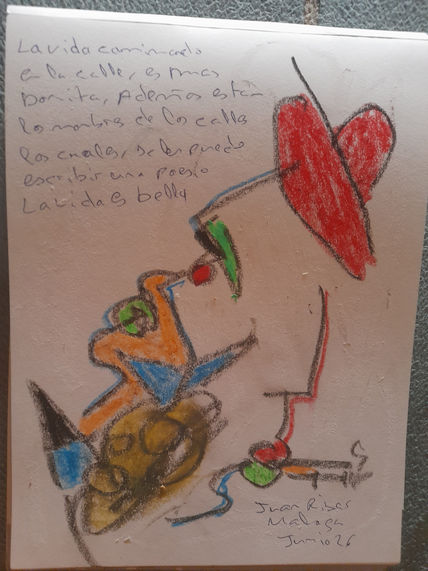 La vida caminando
en la calle, es mas
bonita, Además están
los nombres de los calles
los cuales, se les puede
escribir una poesia
La vida es bella
Juan Ribas
Malaga
Junio 26